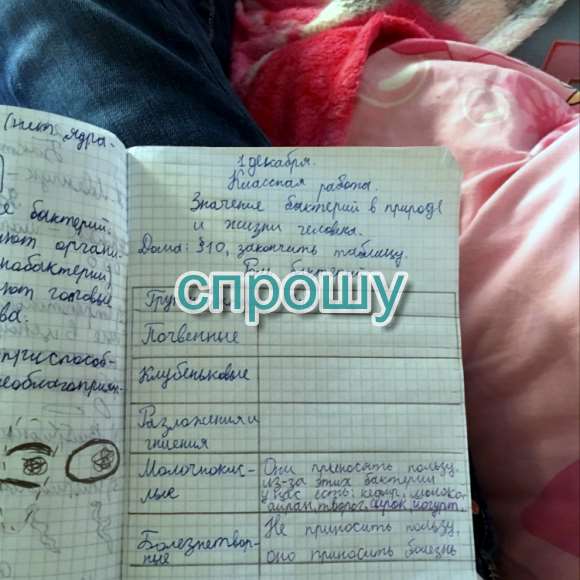 (нет ядра.
е бактерий.
ют органи-
нобактерии)
ют готовые
ва.
приспособ-
еоблагоприя-
1 декабря.
Классная работа.
Значение бактерий в природе
и жизни человека.
Дома: §10, закончить таблицу.
спрошу
Почвенные
Клубеньковые
Разложения и
гниения
Молочнокис-
лые
Они приносять пользу.
из-за этих бактерии
у нас есть: кефир,
айран, творог, сырок, йогурт.
Болезнетвор-
ные
Не приносить пользу,
оно приносить болезнь